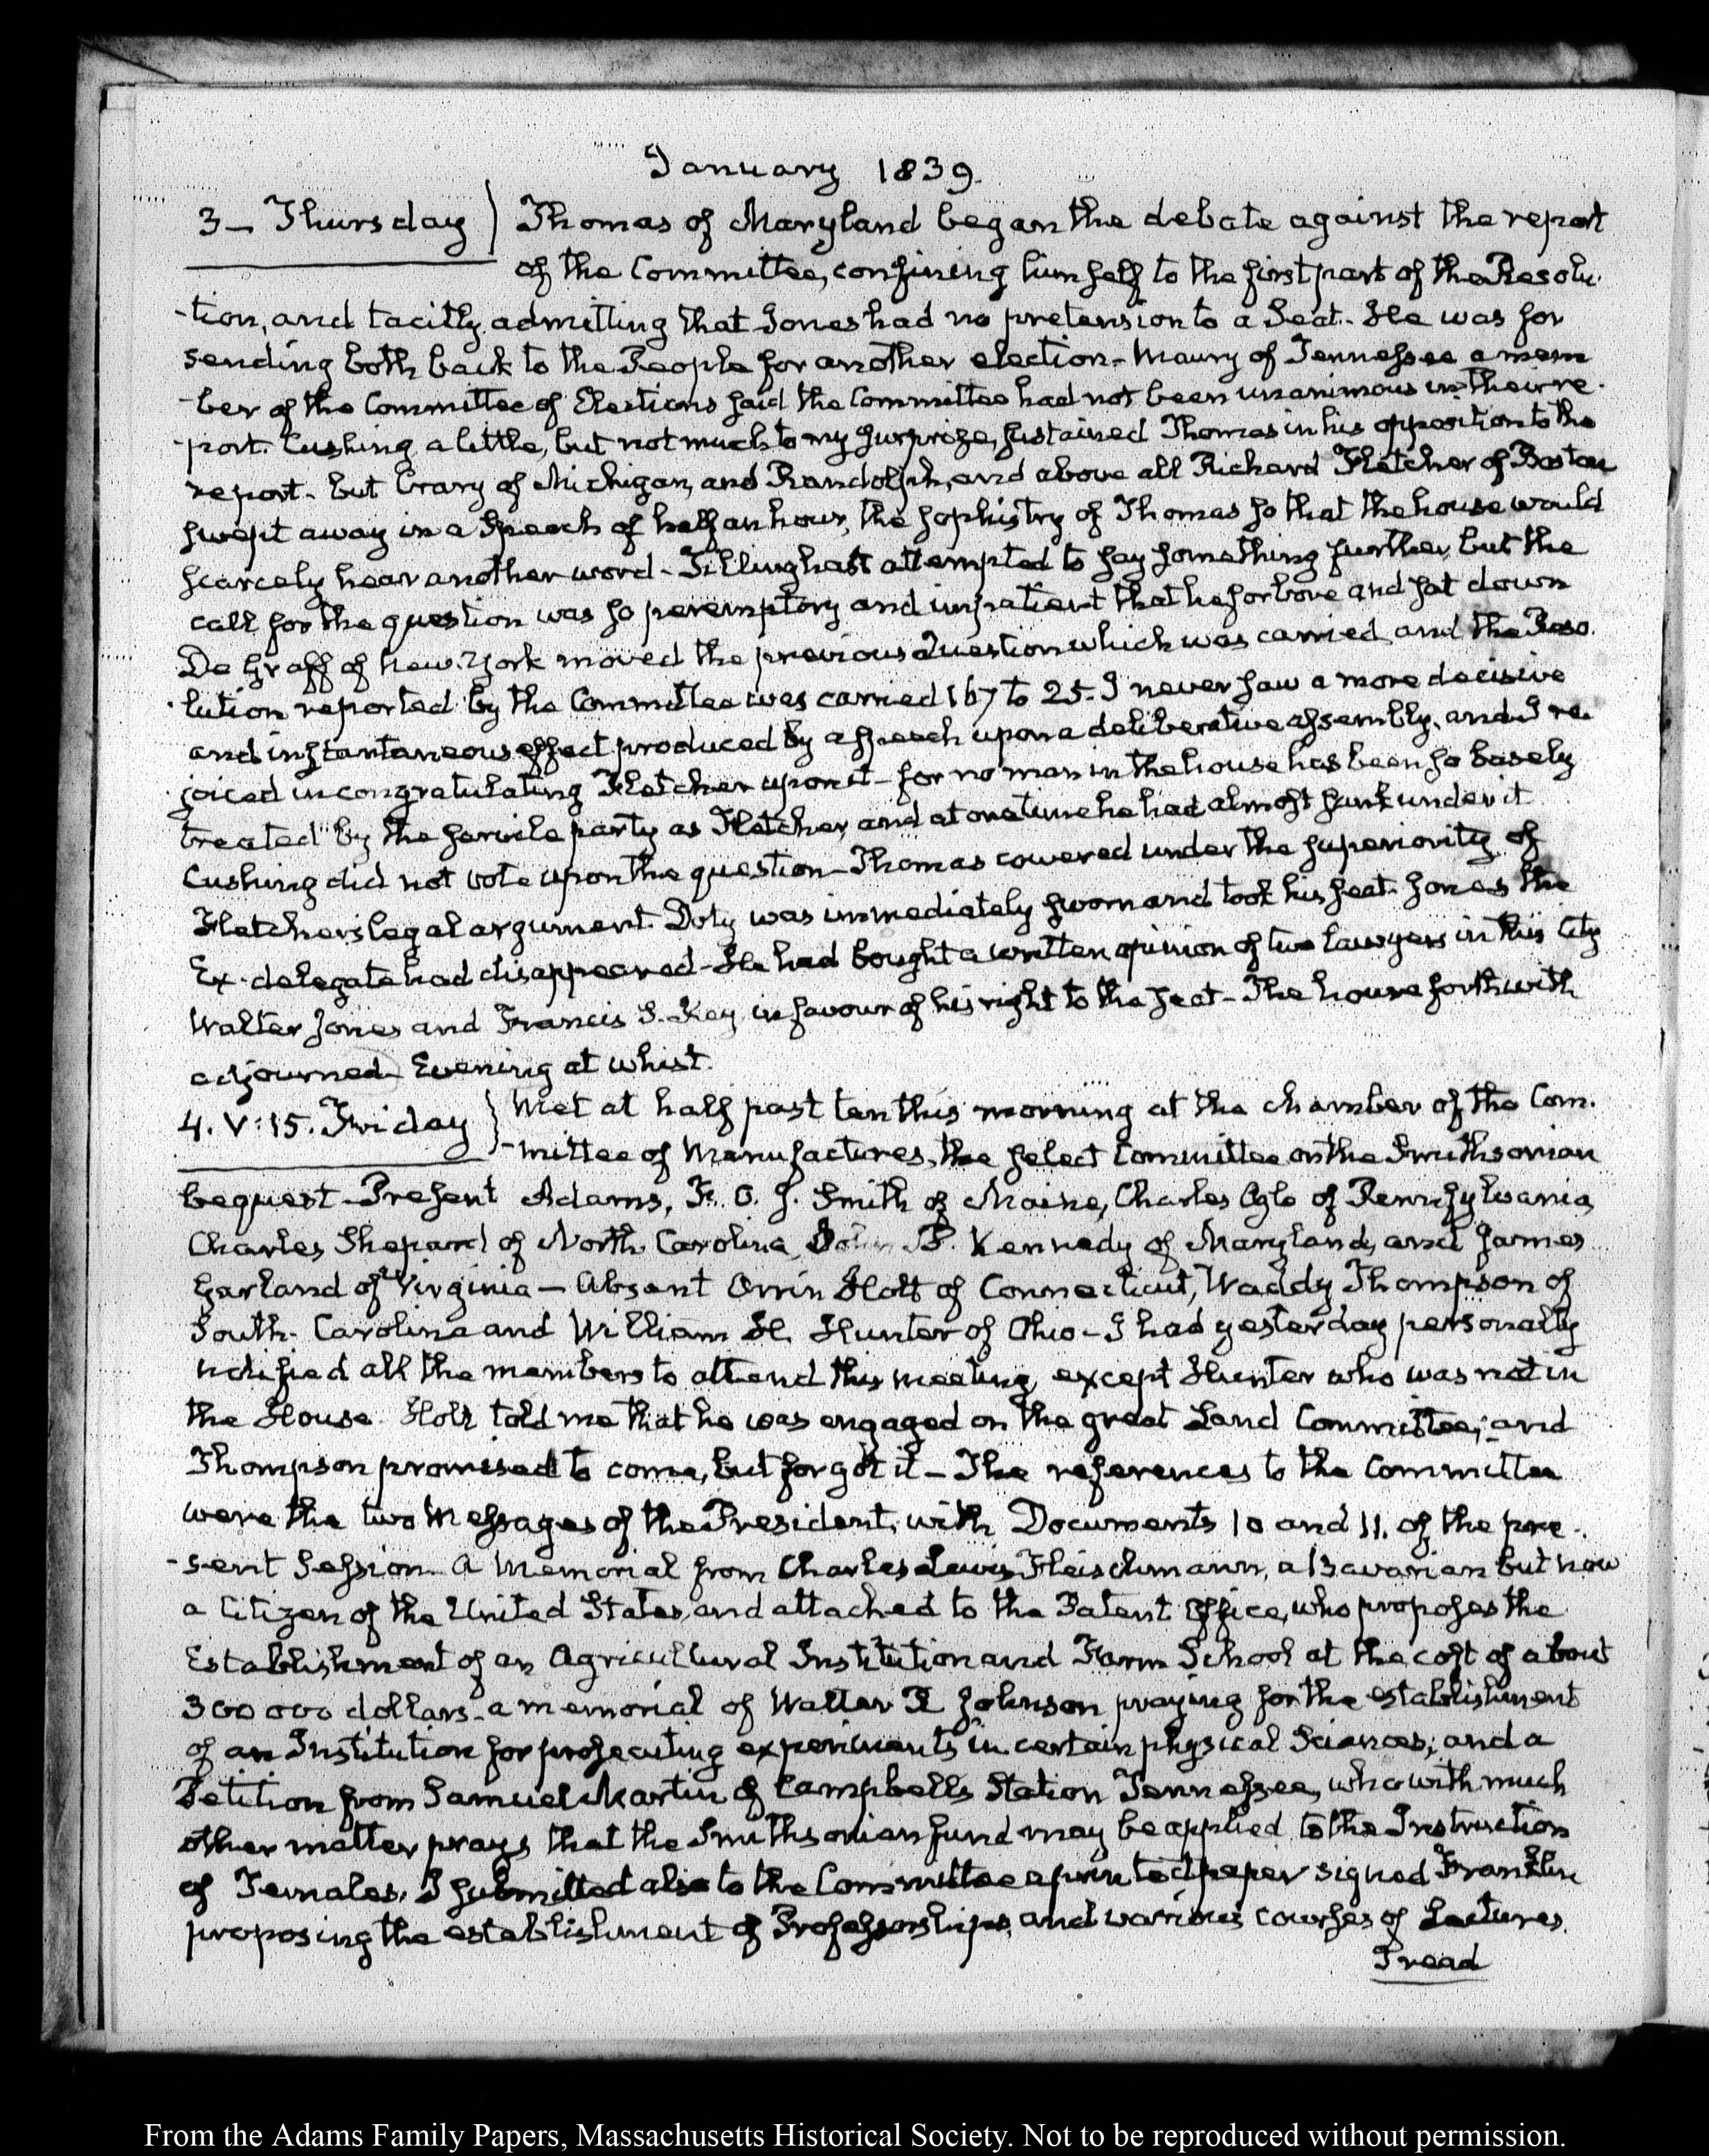 January 1839.
3 – Thursday } Thomas of Maryland began the debate against the report
of the Committee, confining himself to the first part of the Resolu-
-tion, and tacitly admitting that Jones had no pretension to a Seat. He was for
sending both back to the People for another election – Maury of Tennessee a mem
-ber of the Committee of Elections said the Committee had not been unanimous in their re-
-port. Cushing a little, but not much to my surprize, sustained Thomas in his opposition to the
report – but Crary of Michigan, and Randolph, and above all Richard Fletcher of Boston
swept away in a Speech of half an hour, the sophistry of Thomas so that the house would
scarcely hear another word – Tillinghast attempted to say something further, but the
call for the question was so peremptory and impatient that he forbore and sat down
De Graff of New-York moved the previous Question which was carried, and the Reso-
-lution reported by the Committee was carried 167 to 25. I never saw a more decisive
and instantaneous effect produced by a speech upon a deliberative assembly, and I re-
joiced in congratulating Fletcher upon it – for no man in the house has been so basely
treated by the servile party as Fletcher, and at one time he had almost sunk under it
Cushing did not vote upon the question – Thomas cowered under the superiority of
Fletcher's legal argument. Doty was immediately sworn and took his seat. Jones the
Ex-delegate had disappeared – He had bought a written opinion of two lawyers in this City
Walter Jones and Francis S. Key in favour of his right to the seat – The house forthwith
adjourned – Evening at whist.
4. V:15. Friday } Met at half past ten this morning at the chamber of the Com-
-mittee of Manufactures, the select Committee on the Smithsonian
bequest – Present Adams, F. O. J. Smith of Maine, Charles Ogle of Pennsylvania,
Charles Shepard of North Carolina, John P. Kennedy of Maryland, and James
Garland of Virginia – Absent Orrin Holt of Connecticut, Waddy Thompson of
South-Carolina and William H. Hunter of Ohio – I had yesterday personally
notified all the members to attend this meeting, except Hunter who was not in
the House. Holt told me that he was engaged on the great Land Committee; and
Thompson promised to come, but forgot it – The references to the Committee
were the two Messages of the President, with Documents 10 and 11. of the pre-
-sent Session – A Memorial from Charles Lewis Fleischmann, a Bavarian but now
a Citizen of the United States, and attached to the Patent Office, who proposes the
Establishment of an Agricultural Institution and Farm School at the cost of about
300 000 dollars – a memorial of Walter R Johnson praying for the establishment
of an Institution for prosecuting experiments in certain physical Sciences; and a
Petition from Samuel Martin of Campbells Station Tennessee, who with much
other matter prays that the Smithsonian fund may be applied to the Instruction
of Females. I submitted also to the Committee a printed paper signed Franklin
proposing the establishment of Professorships, and various courses of Lectures.
I read
From the Adams Family Papers, Massachusetts Historical Society. Not to be reproduced without permission.